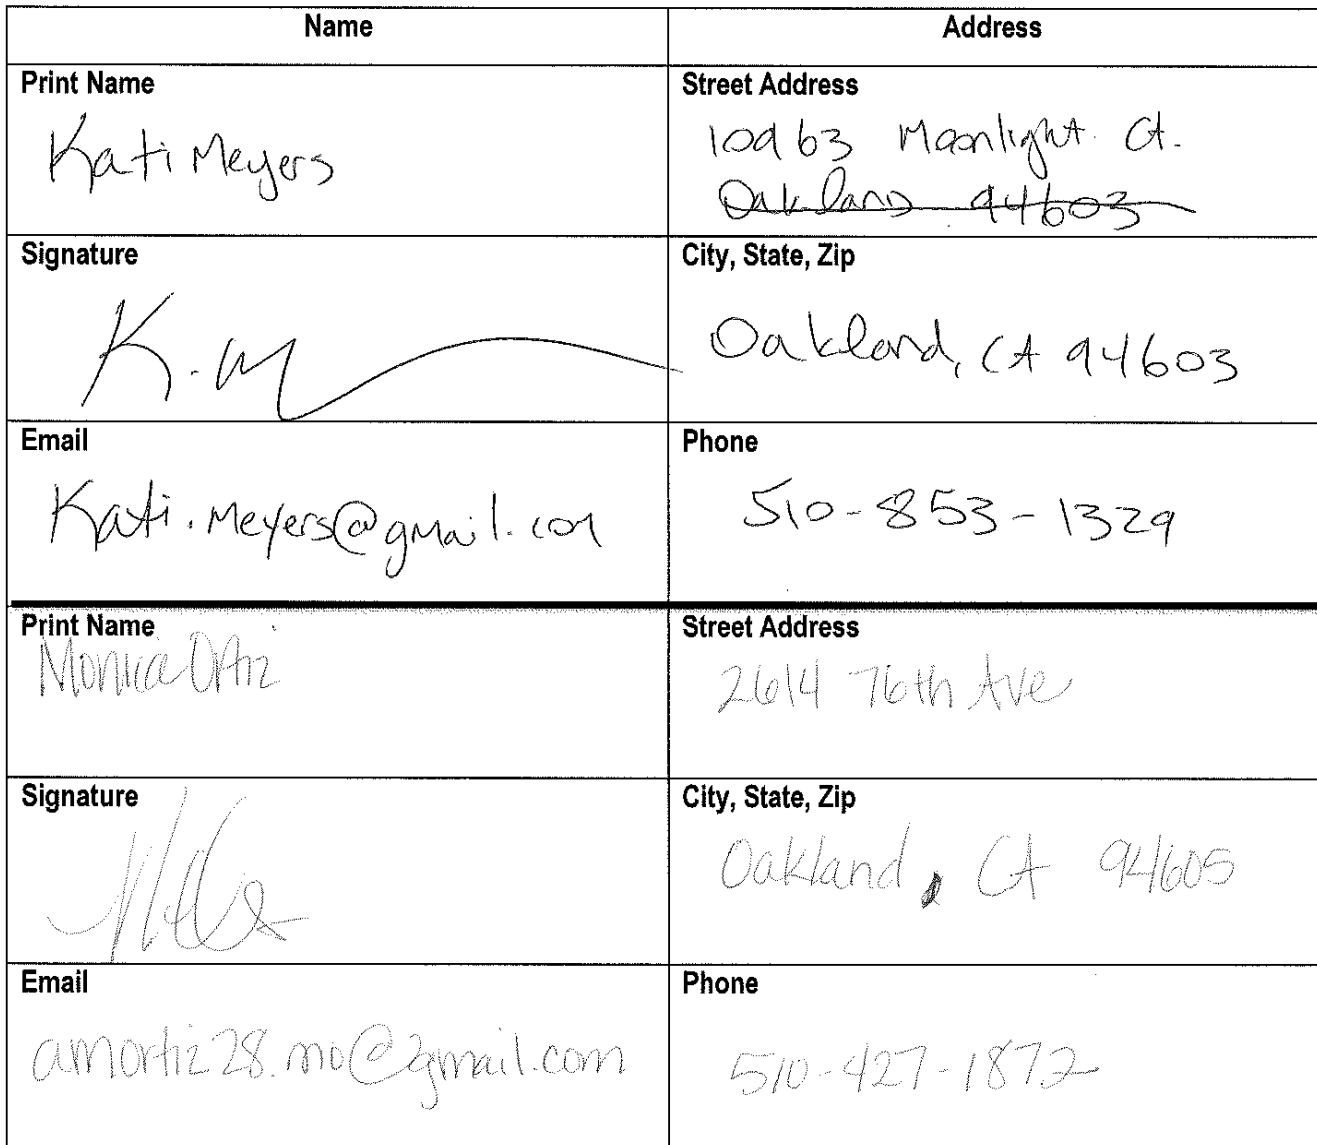 Name
Address
Print Name
Kati Meyers
Street Address
10963 Moonlight Ct.
Oakland 94603
Signature
K. M
City, State, Zip
Oakland, CA 94603
Email
Kati.Meyers@gmail.com
Phone
510-853-1329
Print Name
Monica Ortiz
Street Address
2614 76th Ave
Signature
City, State, Zip
Oakland, CA 94605
Email
amortiz28.mo@gmail.com
Phone
510-427-1872